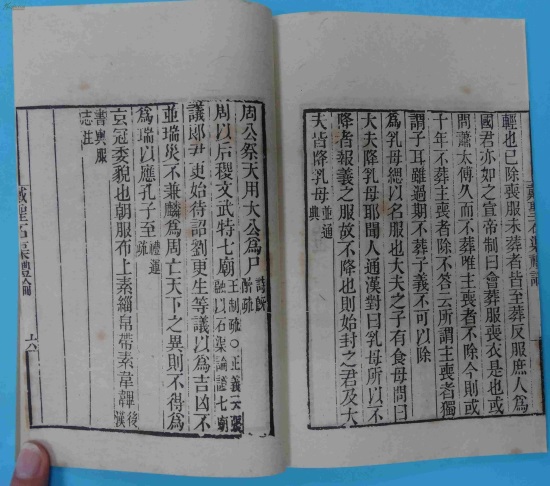 輕也已除喪服未葬者皆至葬反服庶人爲
國君亦如之宣帝制曰會葬服喪衣是也或
問蕭太傅久而不葬唯主喪者不除今則或
十年不葬主喪者除不答云所謂主喪者獨
謂子耳雖過期不葬子義不可以除
爲乳母緦以名服也大夫之子有食母問曰
大夫降乳母耶聞人通漢對曰乳母所以不
降者報義之服故不降也則始封之君及大
夫皆降乳母 並通典
周公祭天用大公爲尸
周以后稷文武特七廟 王制疏○正義
融以石渠論 七廟
議郎尹更始待詔劉更生等議以爲吉凶不
並瑞災不兼麟爲周亡天下之異則不得爲
爲瑞以應孔子至 禮運疏
玄冠委貌也朝服布上素緇帛帶素韋韠 後漢
書輿服
志注